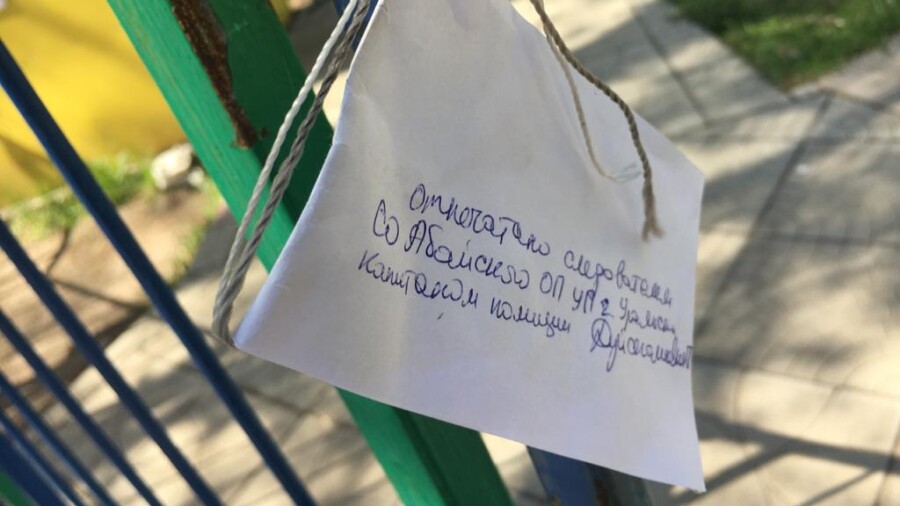 Отпечатано следователем
СО Абайского ОП УП г. Уральск
капитаном полиции